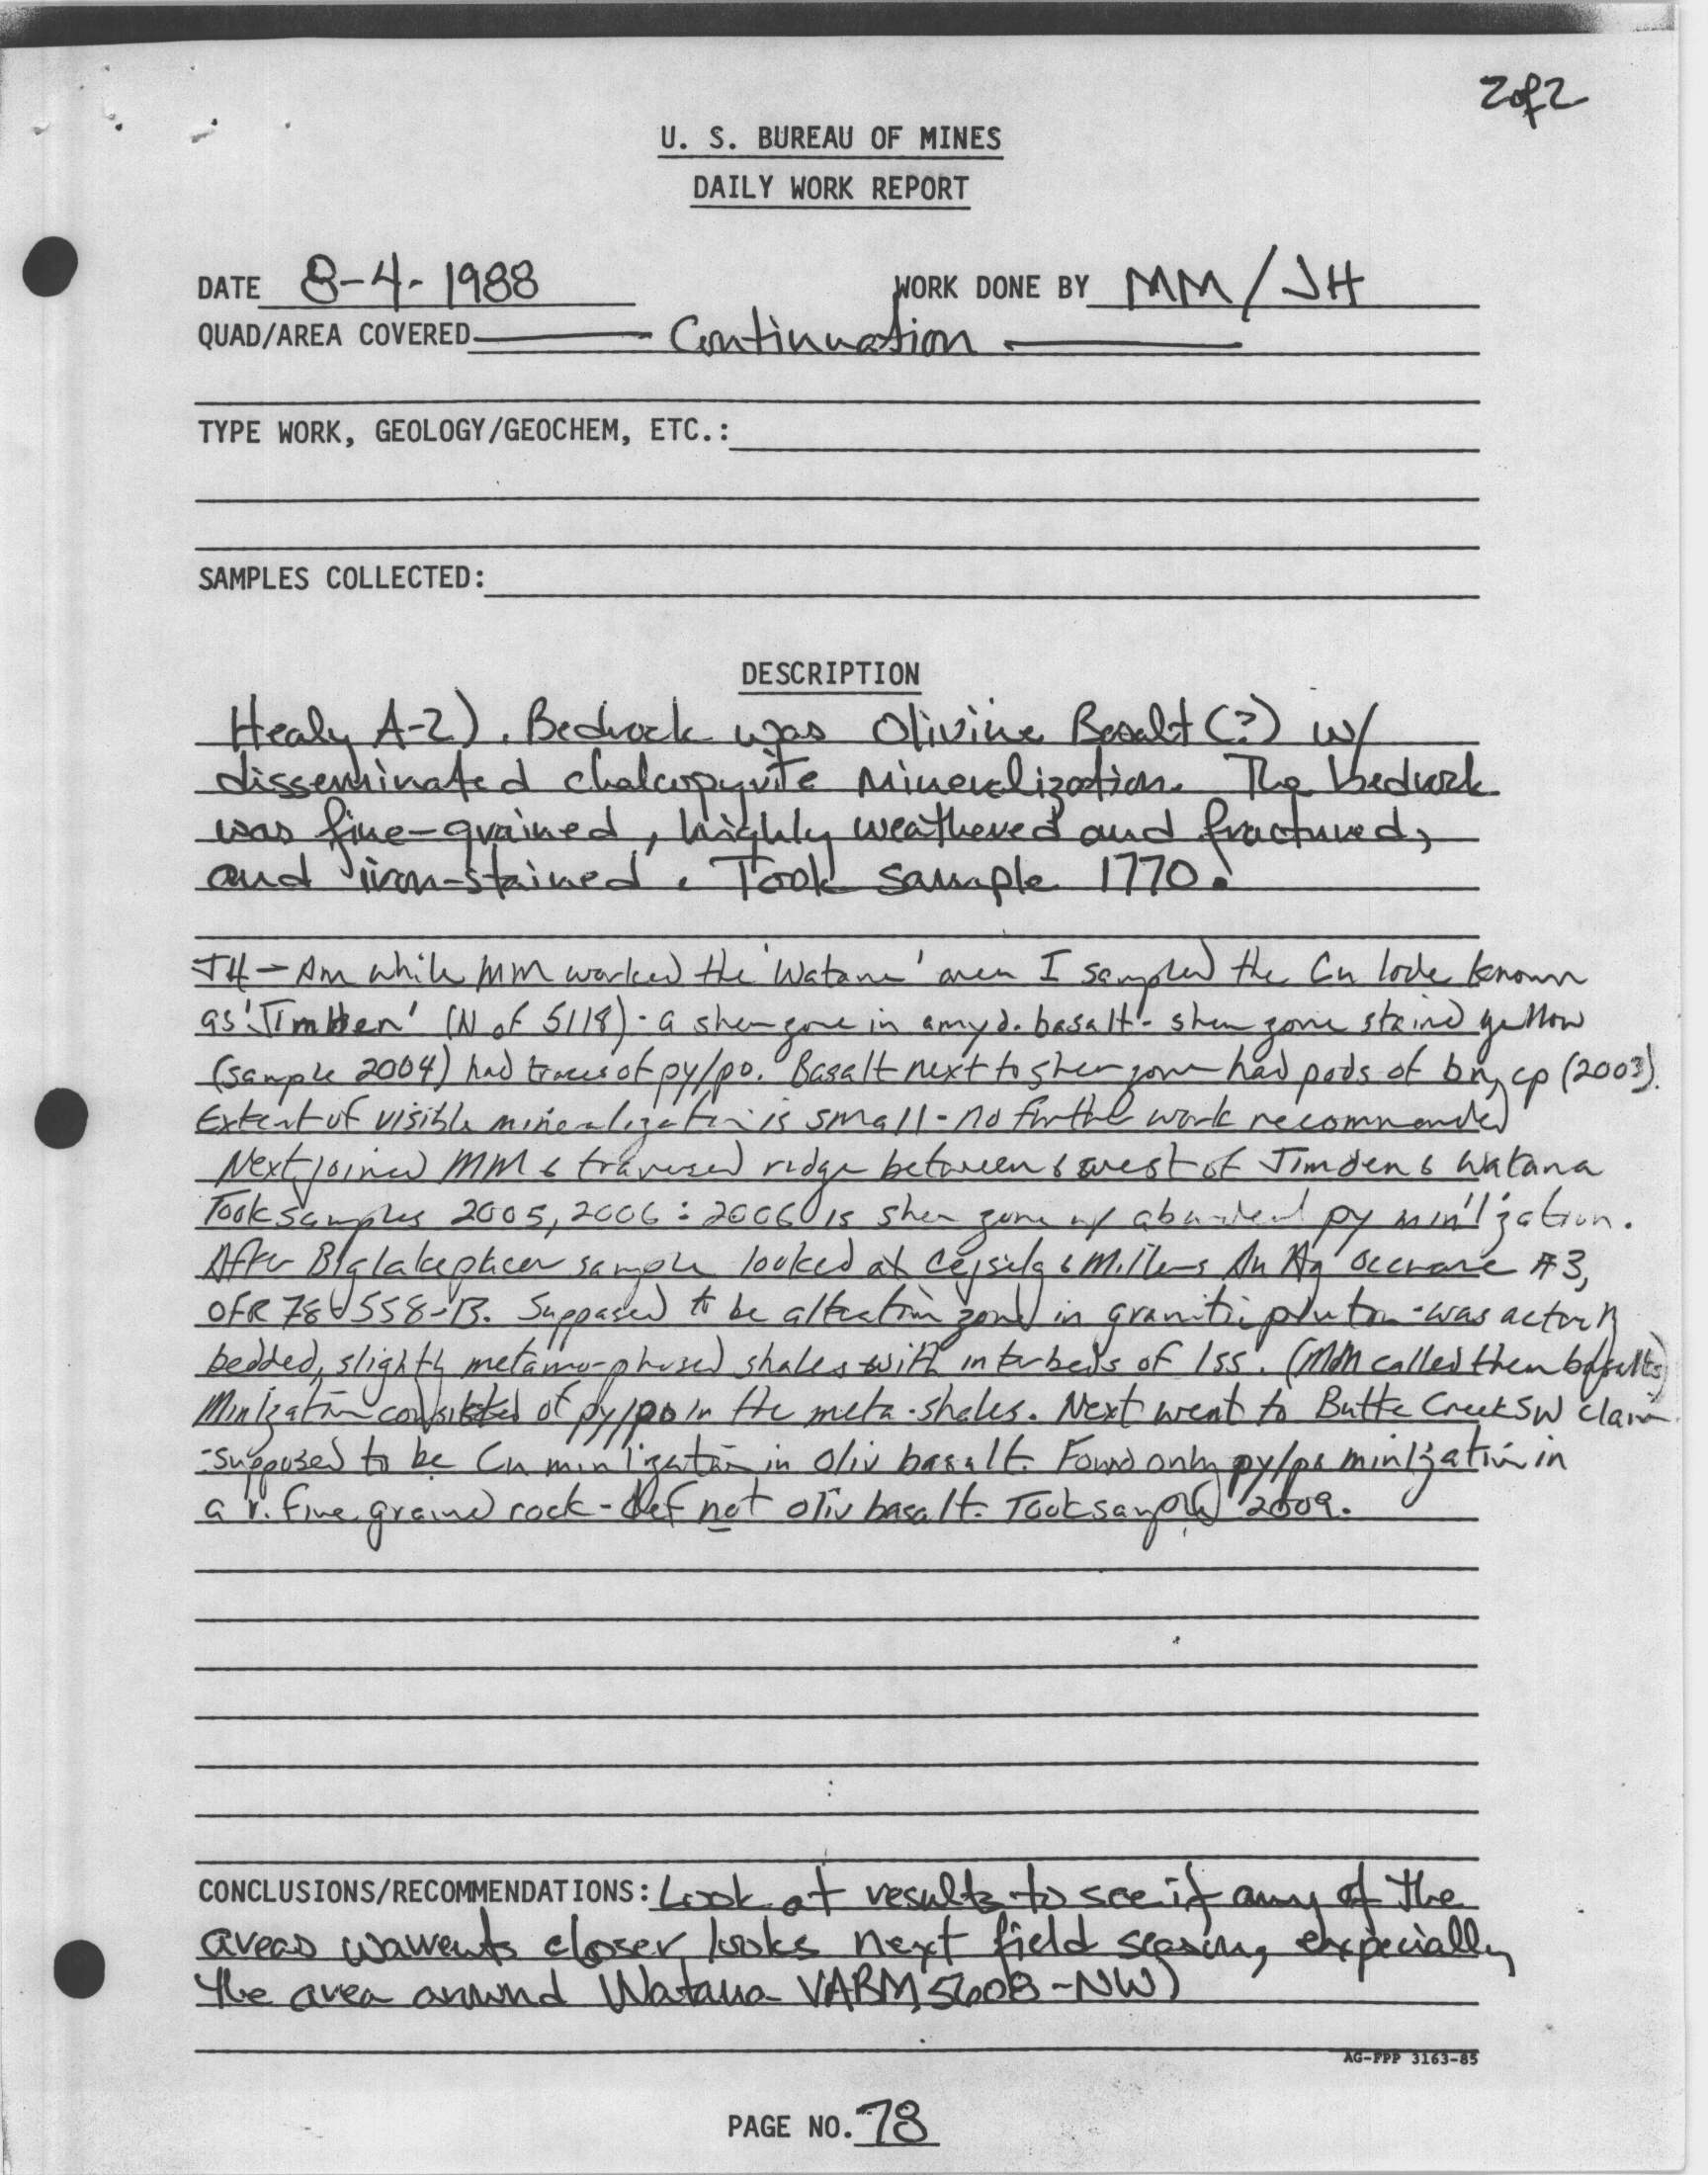 2of2
U. S. BUREAU OF MINES
DAILY WORK REPORT
DATE 8-4-1988 WORK DONE BY MM/JH
QUAD/AREA COVERED Continuation
TYPE WORK, GEOLOGY/GEOCHEM, ETC.:
SAMPLES COLLECTED:
DESCRIPTION
Healy A-2). Bedrock was Olivine Basalt (?) w/
disseminated chalcopyrite mineralization. The bedrock
was fine-grained, highly weathered and fractured,
and iron-stained. Took sample 1770.
JH - Am while MM worked the 'Watana' area I sampled the Cu lode known
as 'Jimden' (N of 5118) - a shear zone in amyd. basalt - shear zone stained yellow
(sample 2004) had traces of py/po. Basalt next to shear zone had pods of bn, cp (2003).
Extent of visible mineralization is small - no further work recommended
Next joined MM & traversed ridge between & west of Jimden & Watana
Took samples 2005, 2006: 2006 is shear zone w/ abundant py min'lzation.
After Biglake placer sample looked at & Millers Au Ag occurance #3,
OFR 78-558-B. Supposed to be alteration zone in granitic pluton - was actually
bedded, slightly metamorphosed shales with interbeds of lss. (MM called them basalts)
Minlzation consisted of py/po in the meta-shales. Next went to Butte Creek SW claim
-supposed to be Cu minlization in Oliv basalt. Found only py/po minlzation in
a v. fine grained rock - def not oliv basalt. Took sample 2009.
CONCLUSIONS/RECOMMENDATIONS: Look at results to see if any of the
areas warrents closer looks next field seasing, expecially
the area around Watana VABM 5608-NW)
AG-FPP 3163-85
PAGE NO. 78